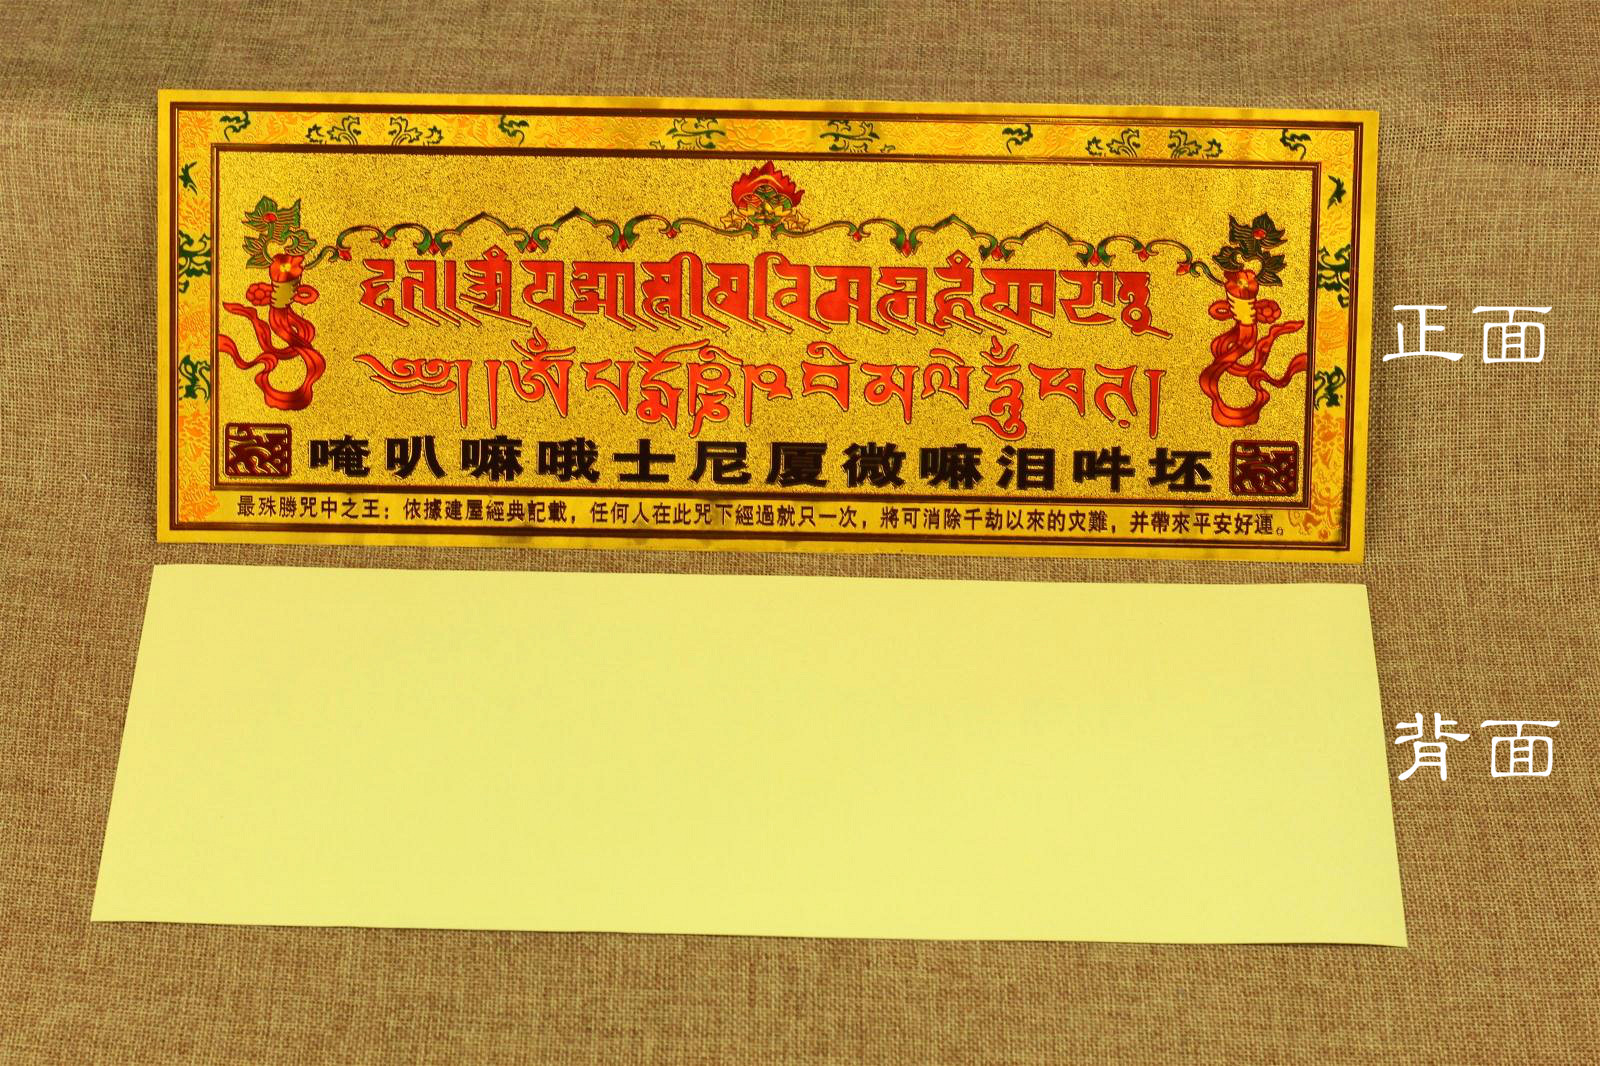 ༄༅། །ༀ་པདྨོ་ཨུཥྞཱིཥ་བི་མ་ལེ་ཧཱུྃ་ཕཊ།
唵叭嘛哦士尼厦微嘛泪吽坯
最殊勝咒中之王：依據建屋經典記載，任何人在此咒下經過就只一次，將可消除千劫以來的灾難，并帶來平安好運。
正面
背面